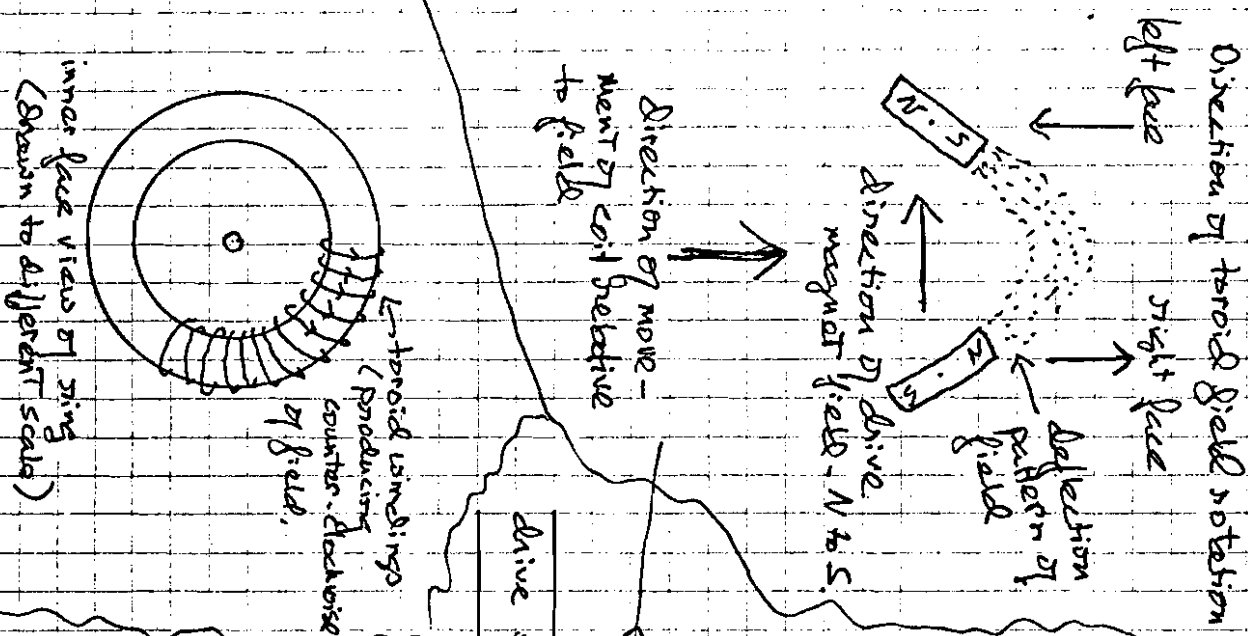 Direction of toroid field rotation
left face
right face
N . S
N . S
deflection
pattern of
field
direction of drive
magnet field - N to S.
direction of move-
ment of coil relative
to field
toroid windings
(producing
counter-clockwise
of field.
inner face view of ring
(drawn to different scale)
drive